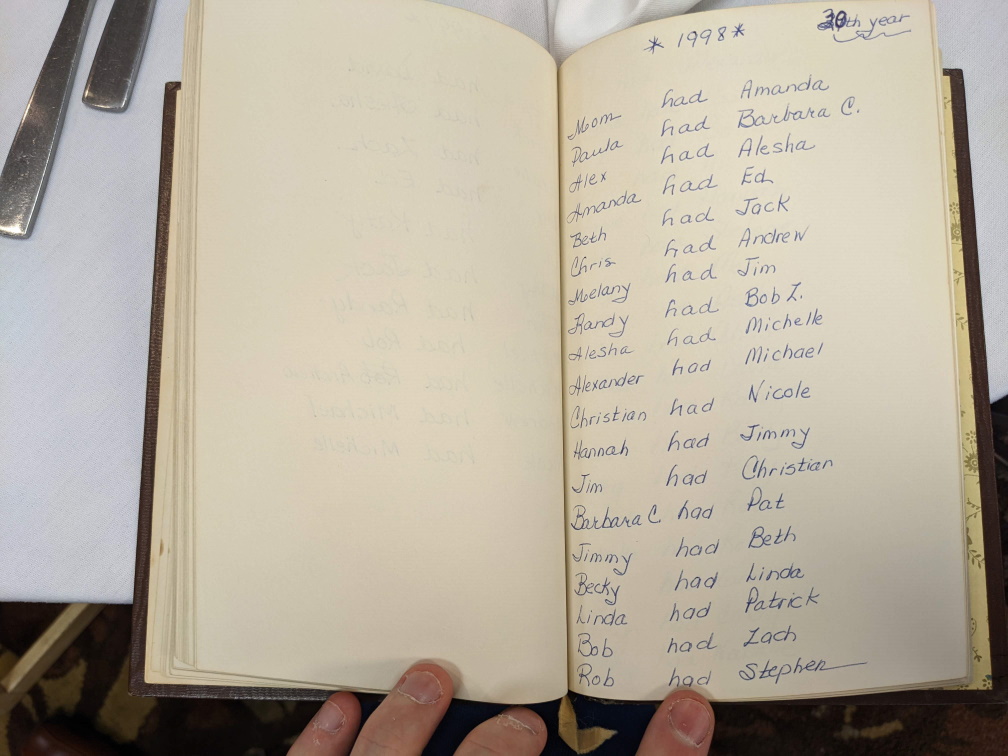 * 1998 * 30th year
Mom had Amanda
Paula had Barbara C.
Alex had Alesha
Amanda had Ed
Beth had Jack
Chris had Andrew
Melany had Jim
Randy had Bob Z.
Alesha had Michelle
Alexander had Michael
Christian had Nicole
Hannah had Jimmy
Jim had Christian
Barbara C had Pat
Jimmy had Beth
Becky had Linda
Linda had Patrick
Bob had Zach
Rob had Stephen